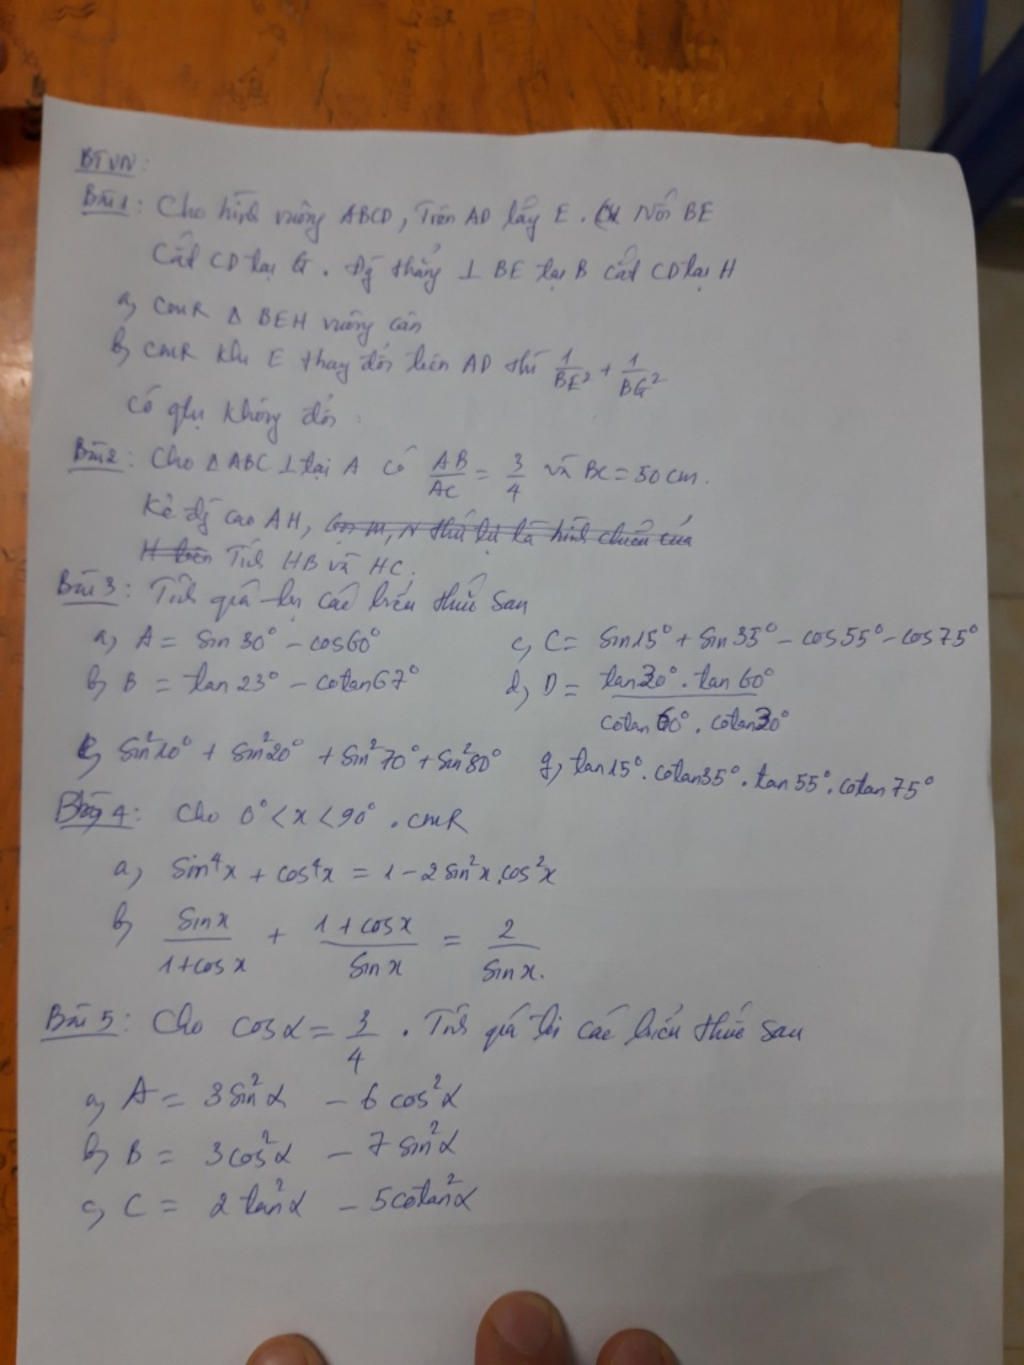 BTVN:
Bài 1: Cho hình vuông ABCD, Trên AD lấy E. Nối BE
Cắt CD tại G. Đg thẳng ⊥ BE tại B cắt CD tại H
a, CMR Δ BEH vuông cân
b, CMR khi E thay đổi trên AD thì 1/BE² + 1/BG²
Có gtrị không đổi.
Bài 2: Cho Δ ABC ⊥ tại A có AB/AC = 3/4 và BC = 50 cm.
Kẻ đg cao AH, Gọi M, N thứ tự là hình chiếu của
H trên Tính HB và HC.
Bài 3: Tính giá trị các biểu thức sau
a, A = sin 30° - cos 60° c, C = sin 15° + sin 35° - cos 55° - cos 75°
b, B = tan 23° - cotan 67° d, D = tan 30° . tan 60° / cotan 60° . cotan 30°
e, sin² 10° + sin² 20° + sin² 70° + sin² 80° g, tan 15° . cotan 35° . tan 55° . cotan 75°
Bài 4: Cho 0° < x < 90° . CMR
a, sin⁴x + cos⁴x = 1 - 2 sin²x . cos²x
b, sin x / 1 + cos x + 1 + cos x / sin x = 2 / sin x.
Bài 5: Cho cos α = 3/4 . Tính giá trị các biểu thức sau
a, A = 3 sin² α - 6 cos² α
b, B = 3 cos² α - 7 sin² α
c, C = 2 tan² α - 5 cotan² α